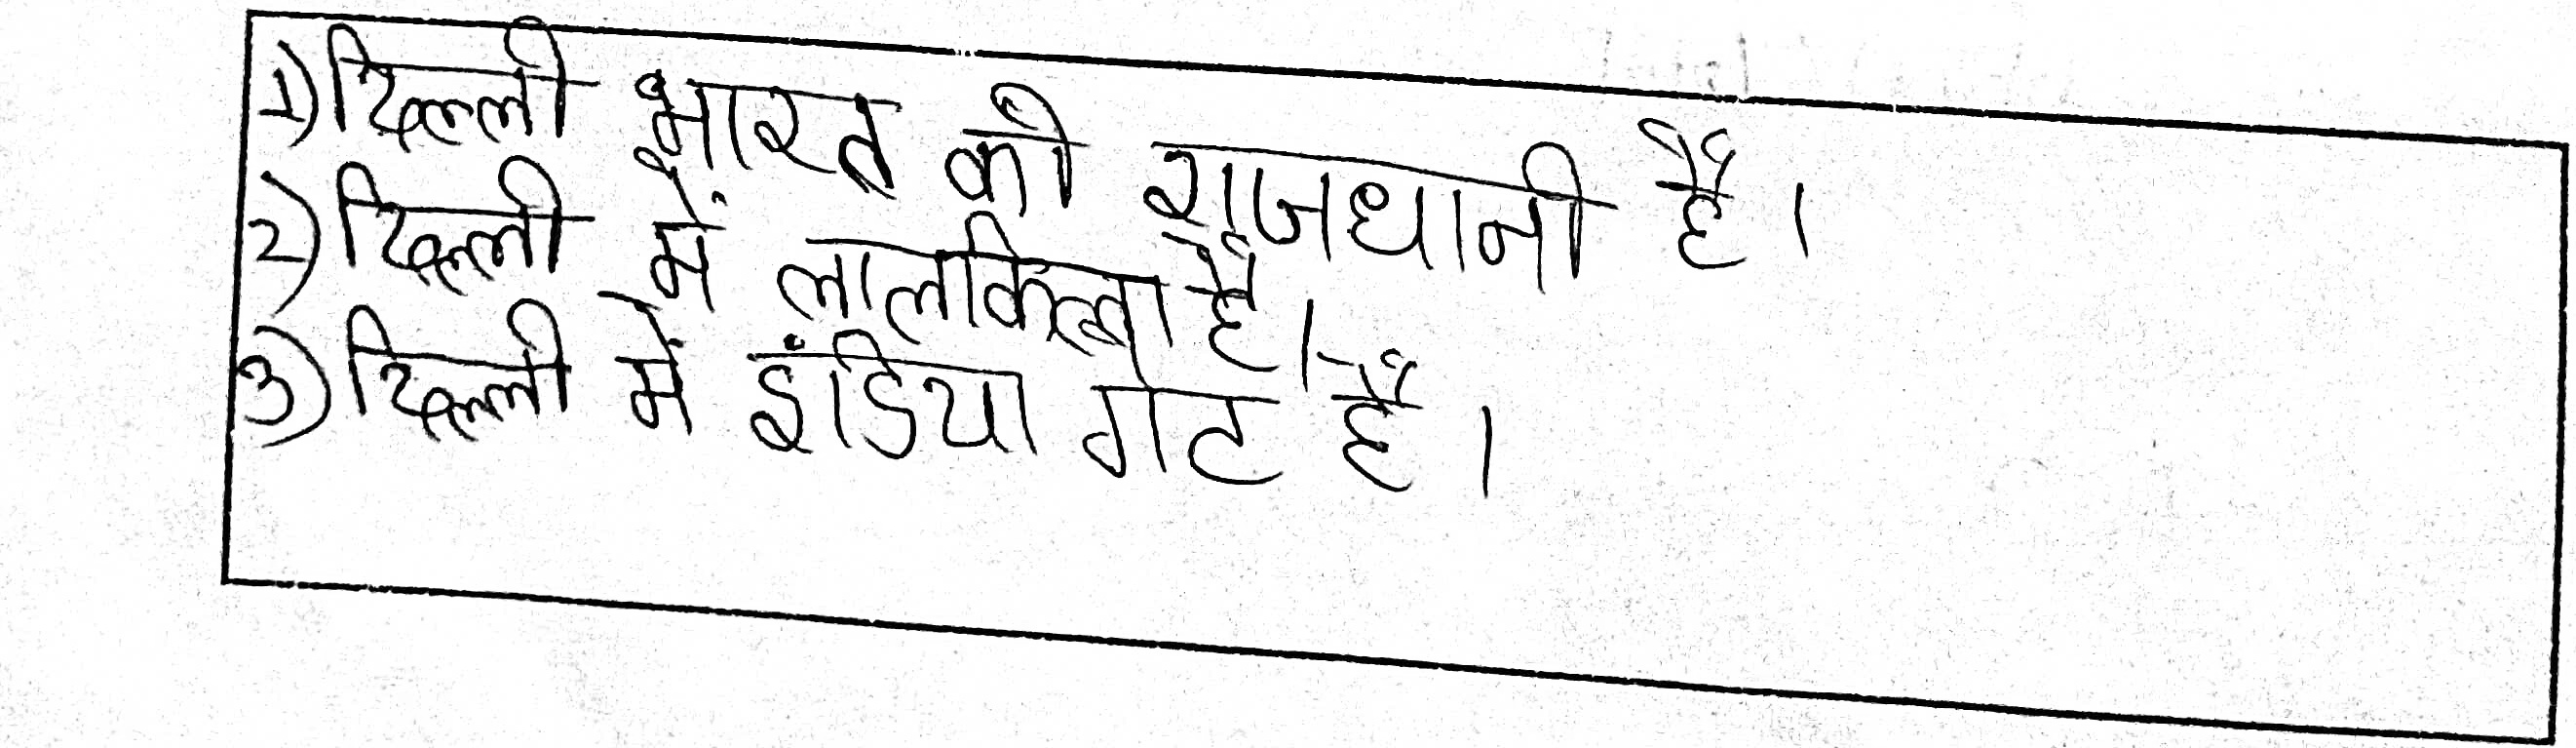 1) दिल्ली भारत की राजधानी हैं।
2) दिल्ली में लालकिल्ला हैं।
3) दिल्ली में इंडिया गेट हैं।